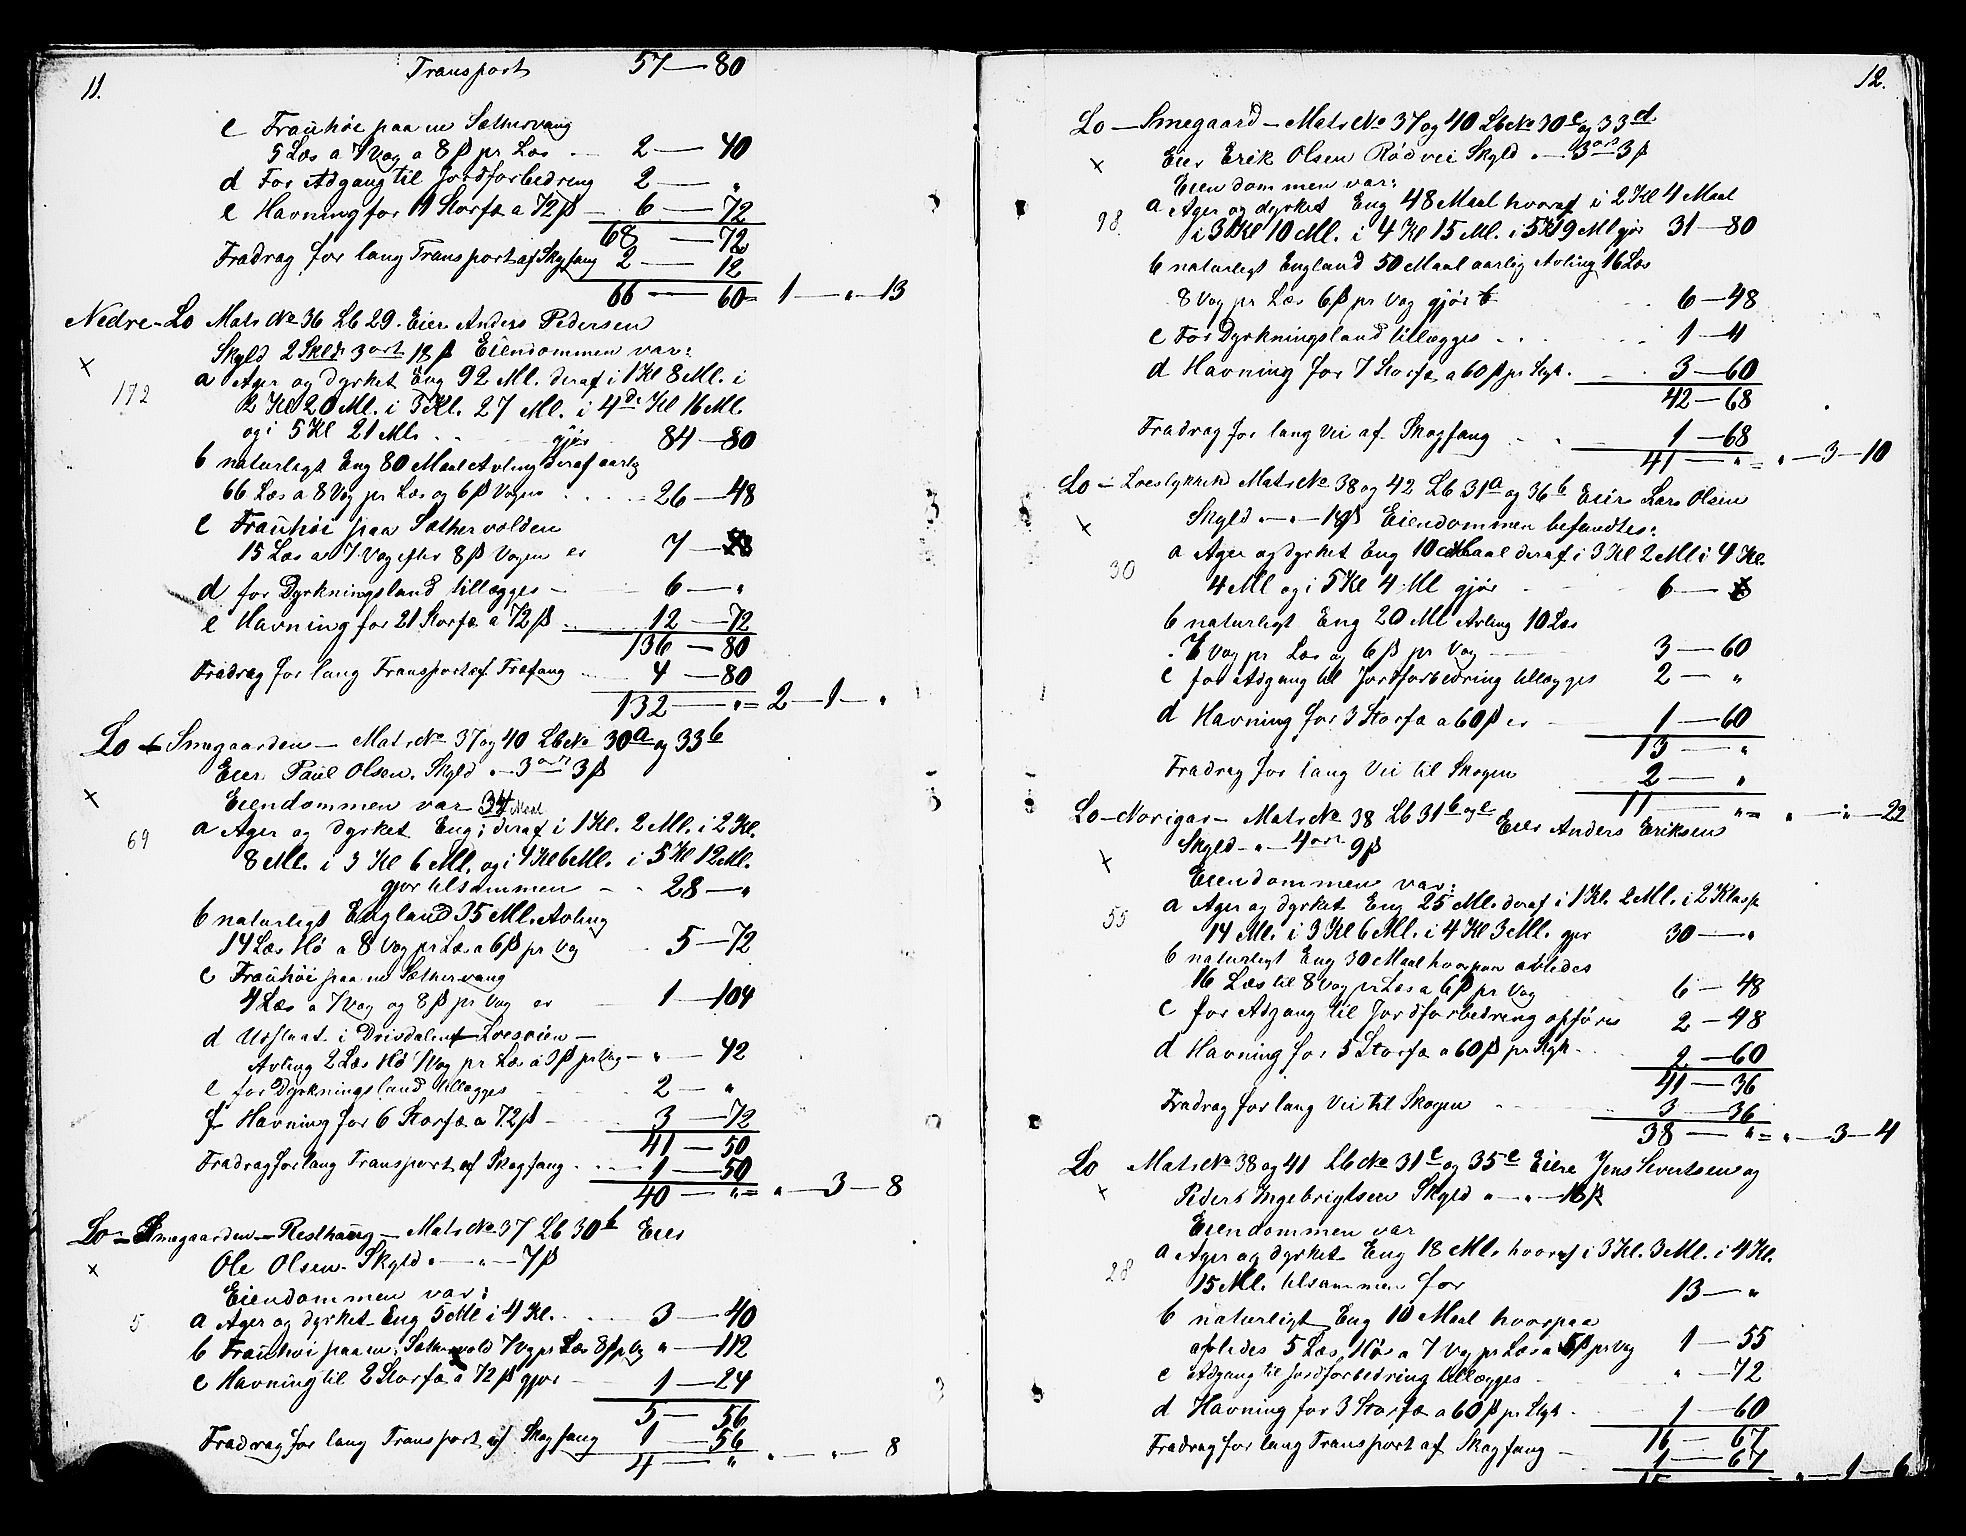 11.
Transport 57—80
c Frauhøi paa en Sæthervang
5 Læs a 7 Vog a 8 ß pr Læs 2—40
d For Adgang til Jordforbedring 2—"
e Havning for 11 Storfæ a 72 ß — 6—72
68—72
Fradrag for lang Transport af Skogfang 2—12
66—60 = 1—"—13
Nedre-Lo Mats No 36 Lb 29. Eier Anders Pedersen
Skyld 2 Skld 3 ort 18 ß Eiendommen var:
172
a Ager og dyrket Eng 92 Ml. deraf i 1 Kl 8 Ml. i
2 Kl 20 Ml. i 3 Kl. 27 Ml. i 4de Kl 16 Ml.
og i 5 Kl 21 Ml. gjør 84—80
b naturligt Eng 80 Maal Avling deraf aarlig
66 Læs a 8 Vog pr Læs og 6 ß Vogen 26—48
c Frauhøi paa Sæthervolden
15 Læs a 7 Vog efter 8 ß Vogen er 7—
d for Dyrkningsland tillægges — 6—"
e Havning for 21 Storfæ a 72 ß 12—72
136—80
Fradrag for lang Transport af Træfang 4—80
132—" = 2—1—"
Lo — Smegaarden — Mats No 37 og 40 Lb No 30a og 33b
Eier Paul Olsen. Skyld "—3 ort 3 ß
Eiendommen var 34 Maal
69
a Ager og dyrket Eng; deraf i 1 Kl. 2 Ml. i 2 Kl.
8 Ml. i 3 Kl 6 Ml. og i 4 Kl 6 Ml. i 5 Kl 12 Ml.
gjør tilsammen — 28—"
b naturligt England 35 Ml. Avling
14 Læs Hø a 8 Vog pr Læs a 6 ß pr Vog 5—72
c Frauhøi paa en Sæthervang
4 Læs a 7 Vog og 8 ß pr Vog er 1—104
d Udslaat i Drivdalen Loesøien —
Avling 2 Læs Hø 7 Vog pr Læs a 3 ß pr Vog — "—42
e for Dyrkningsland tillægges 2—"
f Havning for 6 Storfæ a 72 ß — 3—72
41—50
Fradrag for lang Transport af Skogfang 1—50
40—" = "—3—8
Lo — Smegaarden — Resthaug — Mats No 37 Lb 30b Eier
Ole Olsen. Skyld "—"—7 ß
Eiendommen var:
5
a Ager og dyrket Eng 5 Ml i 4 Kl. 3—40
b Frauhøi paa en Sæthervold 7 Vog pr Læs 8 ß pr Vog "—112
c Havning til 2 Storfæ a 72 ß gjør — 1—24
5—56
Fradrag for lang Transport af Skogfang 1—56
4—" "—"—8
12.
Lo — Smegaard — Mats No 37 og 40 Lb No 30c og 33d
Eier Erik Olsen Rødvei Skyld "—3 ort 3 ß
Eiendommen var:
98.
a Ager og dyrket Eng 48 Maal hvoraf i 2 Kl 4 Maal
i 3 Kl 10 Ml. i 4 Kl 15 Ml. i 5 Kl 19 Ml gjør 31—80
b naturligt England 50 Maal aarlig Avling 16 Læs
8 Vog pr Læs 6 ß pr Vog gjør 6—48
c For Dyrkningsland tillægges 1—"
d Havning for 7 Storfæ a 60 ß pr Styk. 3—60
42—68
Fradrag for lang Vei af Skogfang 1—68
41—" = "—3—10
Lo — Loeslykken Mats No 38 og 42 Lb 31a og 36b Eier Lars Olsen
Skyld "—"—18 ß Eiendommen befandtes:
30
a Ager og dyrket Eng 10 Maal deraf i 3 Kl 2 Ml i 4 Kl.
4 Ml og i 5 Kl 4 Ml gjør 6—
b naturligt Eng 20 Ml Avling 10 Læs
7 Vog pr Læs og 6 ß pr Vog 3—60
c for Adgang til Jordforbedring tillægges 2—"
d Havning for 3 Storfæ a 60 ß er — 1—60
13—"
Fradrag for lang Vei til Skogen 2—"
11—" = "—"—22
Lo — Norigar — Mats No 38 Lb 31b og c Eier Anders Eriksen
Skyld "—4 ort 9 ß
Eiendommen var:
55
a Ager og dyrket Eng 25 Ml. deraf i 1 Kl. 2 Ml. i 2 Klasse
14 Ml. i 3 Kl 6 Ml. i 4 Kl 3 Ml. gjør 30—"
b naturligt Eng 30 Maal hvorpaa avledes
16 Læs til 8 Vog pr Læs a 6 ß pr Vog 6—48
c for Adgang til Jordforbedring opføres 2—48
d Havning for 5 Storfæ a 60 ß pr Styk — 2—60
41—36
Fradrag for lang Vei til Skogen 3—36
38—" = "—3—4
Lo Mats No 38 og 41 Lb No 31e og 35e Eiere Jens Sivertsen og
Peder Ingebrigtsen Skyld "—"—18 ß
Eiendommen var
28
a Ager og dyrket Eng 18 Ml. hvoraf i 3 Kl. 3 Ml. i 4 Kl.
15 Ml. tilsammen for 13—"
b naturligt Eng 10 Maal hvorpaa
avledes 5 Læs Hø a 7 Vog pr Læs a 5 ß pr Vog 1—55
c Adgang til Jordforbedring tillægges "—72
d Havning for 3 Storfæ a 60 ß pr Styk 1—60
16—67
Fradrag for lang Transport af Skogfang — 1—67
15 = "—1—6